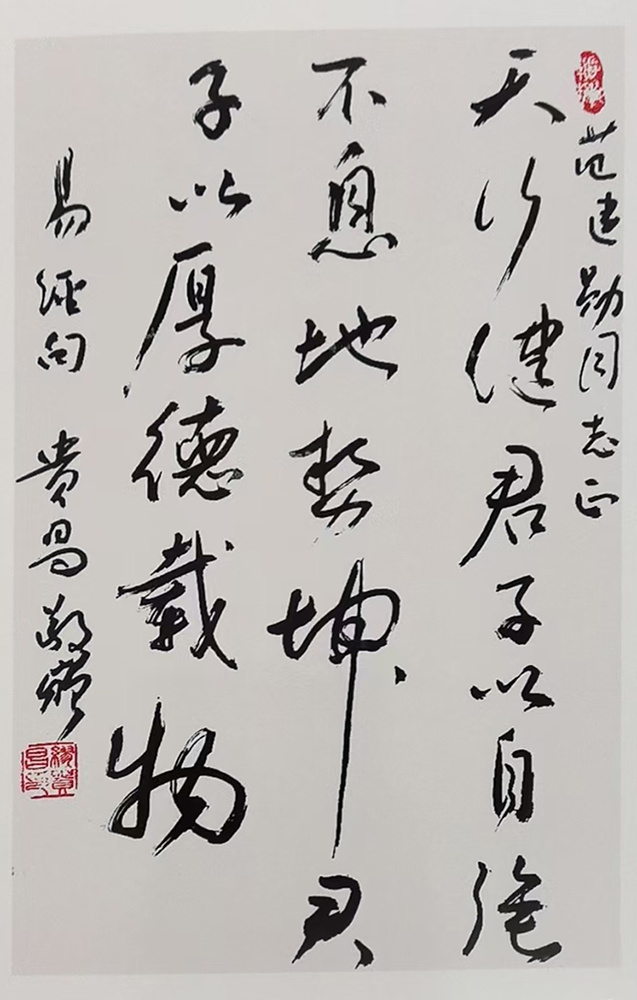 范建勋同志正
天行健君子以自强
不息地势坤君
子以厚德载物
易经句 贵昌敬赠